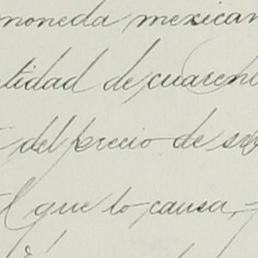 moneda mexican
tidad de cuaren
del precio de
que lo causa,